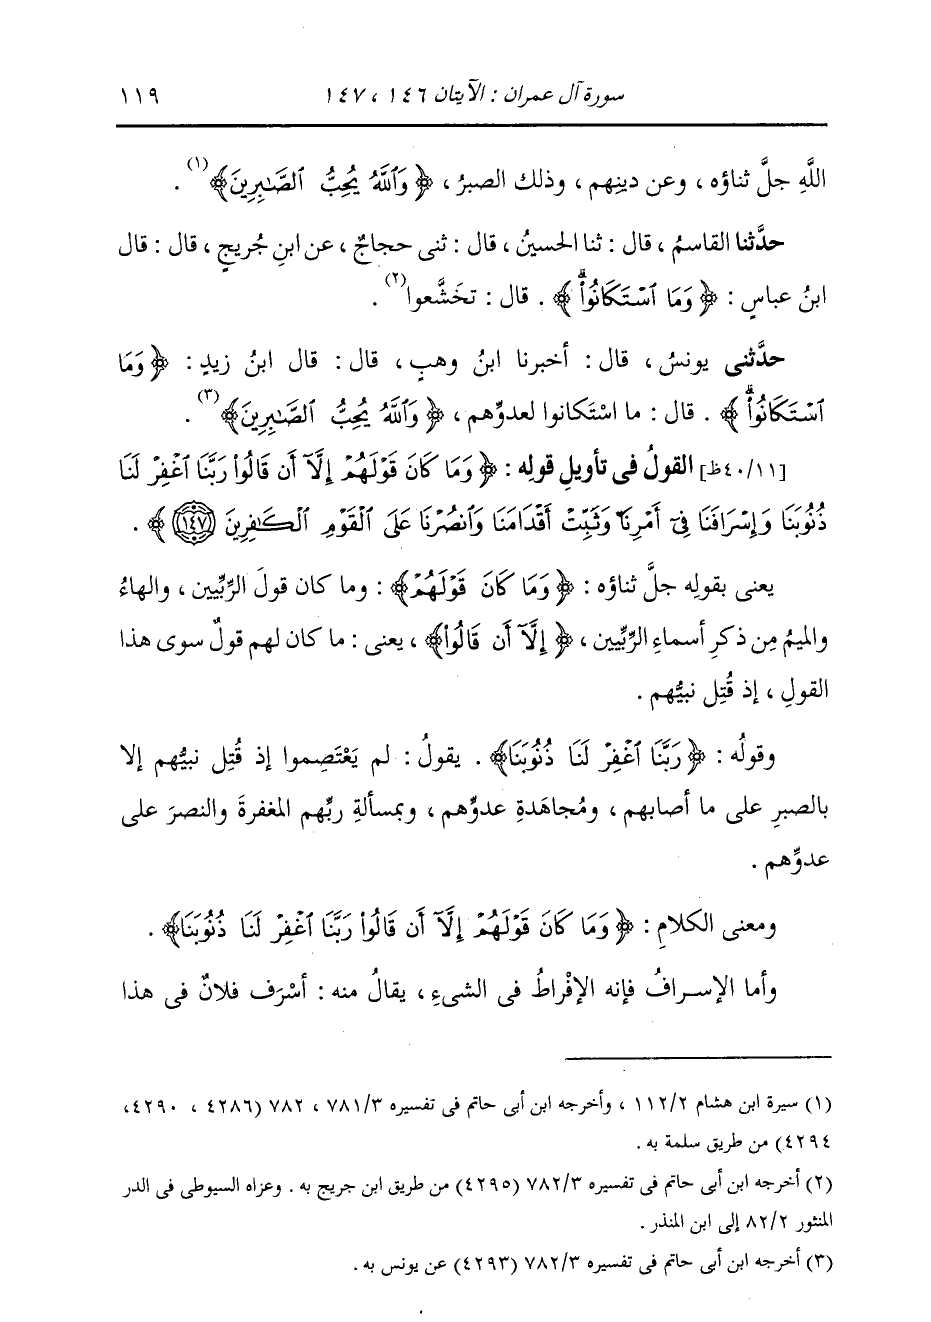 سورة آل عمران : الآيتان ١٤٦ ، ١٤٧ ١١٩
اللَّهِ جلَّ ثناؤه ، وعن دينِهم ، وذلك الصبرُ ، ﴿ وَٱللَّهُ يُحِبُّ ٱلصَّـٰبِرِينَ﴾(١) .
حدَّثنا القاسمُ ، قال : ثنا الحسينُ ، قال : ثنى حجاجٌ ، عن ابنِ جُريجٍ ، قال : قال
ابنُ عباسٍ : ﴿ وَمَا ٱسْتَكَانُوا۟ۗ ﴾ . قال : تخَشَّعوا(٢) .
حدَّثنى يونسُ ، قال : أخبرنا ابنُ وهبٍ ، قال : قال ابنُ زيدٍ : ﴿ وَمَا
ٱسْتَكَانُوا۟ۗ ﴾ . قال : ما اسْتَكانوا لعدوِّهم ، ﴿ وَٱللَّهُ يُحِبُّ ٱلصَّـٰبِرِينَ﴾(٣) .
[٤٠/١١ظ] القولُ فى تأويلِ قولِه : ﴿ وَمَا كَانَ قَوْلَهُمْ إِلَّآ أَن قَالُوا۟ رَبَّنَا ٱغْفِرْ لَنَا
ذُنُوبَنَا وَإِسْرَافَنَا فِىٓ أَمْرِنَا وَثَبِّتْ أَقْدَامَنَا وَٱنصُرْنَا عَلَى ٱلْقَوْمِ ٱلْكَـٰفِرِينَ (١٤٧) ﴾ .
يعنى بقولِه جلَّ ثناؤه : ﴿ وَمَا كَانَ قَوْلَهُمْ﴾ : وما كان قولَ الرِّبِّيين ، والهاءُ
والميمُ مِن ذكرِ أسماءِ الرِّبِّيين ، ﴿ إِلَّآ أَن قَالُوا۟﴾ ، يعنى : ما كان لهم قولٌ سوى هذا
القولِ ، إذ قُتِل نبيُّهم .
وقولُه : ﴿ رَبَّنَا ٱغْفِرْ لَنَا ذُنُوبَنَا﴾ . يقولُ : لم يَعْتَصِموا إذ قُتِل نبيُّهم إلا
بالصبرِ على ما أصابهم ، ومُجاهَدةِ عدوِّهم ، وبمسألةِ ربِّهم المغفرةَ والنصرَ على
عدوِّهم .
ومعنى الكلامِ : ﴿ وَمَا كَانَ قَوْلَهُمْ إِلَّآ أَن قَالُوا۟ رَبَّنَا ٱغْفِرْ لَنَا ذُنُوبَنَا﴾ .
وأما الإسـرافُ فإنه الإفْراطُ فى الشىءِ ، يقالُ منه : أسْرَف فلانٌ فى هذا
(١) سيرة ابن هشام ١١٢/٢ ، وأخرجه ابن أبى حاتم فى تفسيره ٧٨١/٣ ، ٧٨٢ (٤٢٨٦ ، ٤٢٩٠،
٤٢٩٤) من طريق سلمة به .
(٢) أخرجه ابن أبى حاتم فى تفسيره ٧٨٢/٣ (٤٢٩٥) من طريق ابن جريج به . وعزاه السيوطى فى الدر
المنثور ٨٢/٢ إلى ابن المنذر .
(٣) أخرجه ابن أبى حاتم فى تفسيره ٧٨٢/٣ (٤٢٩٣) عن يونس به .